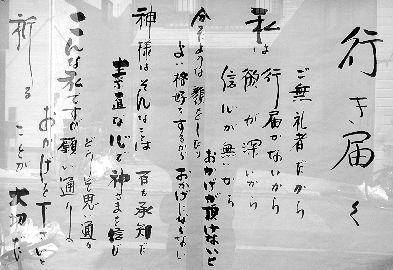 行き届く
ご無礼者だから
私は行届かないから
欲が深いから
信心が無いから
おかげが頂けないと
よい格好をするからおかげにならない
神様はそんなことは百も承知だ
素直な心で神さまを信じ
どうぞ思い通り
こんな私ですが願い通りに
おかげを下さい
祈ることが大切だ